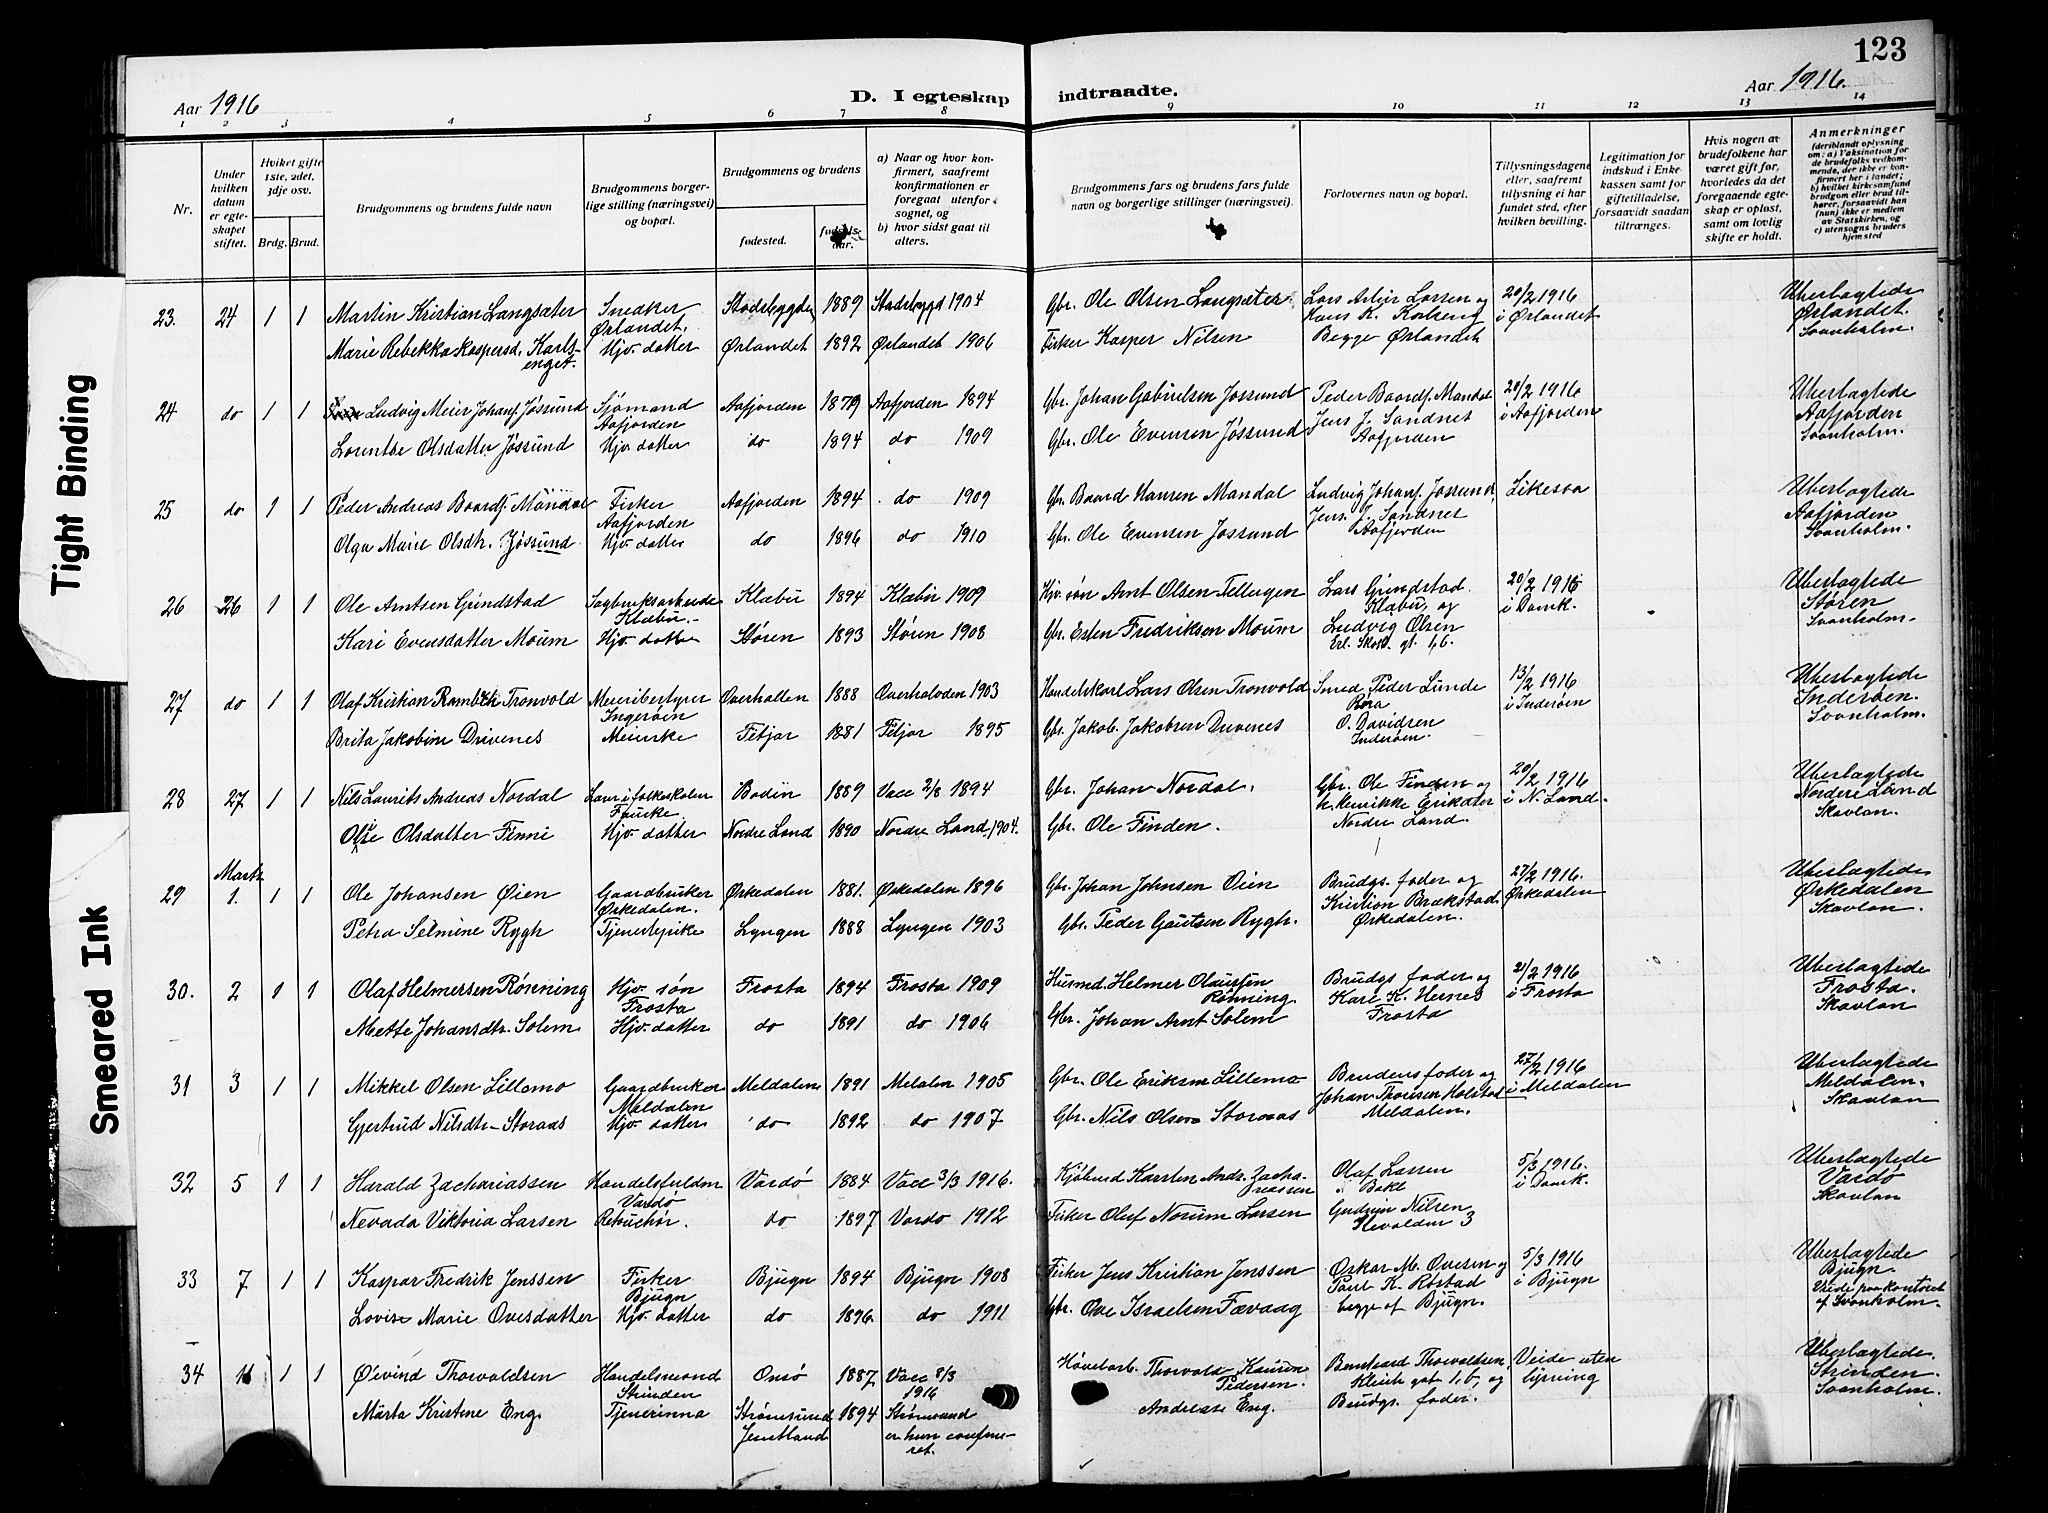 123
Aar 1916
D. I egteskap indtraadte.
Aar 1916.
1 2 3 4 5 6 7 8 9 10 11 12 13 14
Nr.
Under hvilken datum er egteskapet stiftet.
Hvilket gifte 1ste, 2det, 3dje osv.
Brdg. Brud.
Brudgommens og brudens fulde navn
Brudgommens borgerlige stilling (næringsvei) og bopæl.
Brudgommens og brudens
fødested.
fødselsaar.
a) Naar og hvor konfirmert, saafremt konfirmationen er foregaat utenfor sognet, og
b) hvor sidst gaat til alters.
Brudgommens fars og brudens fars fulde navn og borgerlige stillinger (næringsvei).
Forlovernes navn og bopæl.
Tillysningsdagene eller, saafremt tillysning ei har fundet sted, efter hvilken bevilling.
Legitimation for indskud i Enkekassen samt for giftetilladelse, forsaavidt saadan tiltrænges.
Hvis nogen av brudefolkene har været gift før, hvorledes da det foregaaende egteskap er opløst, samt om lovlig skifte er holdt.
Anmerkninger (deriblandt oplysning om: a) Vaksination for de brudefolks vedkommende, der ikke er konfirmert her i landet; b) hvilket kirkesamfund brudgom eller brud tilhører, forsaavidt han (hun) ikke er medlem av Statskirken, og c) utensogns bruders hjemsted
23. 24 1 1 Martin Kristian Langsæter Snedker Ørlandet. Stadsbygden 1889 Stadsbygd 1904 Gbr. Ole Olsen Langsæter. 20/2 1916 i Ørlandet Ubeslagtede Ørlandet. Svanholm.
Marie Rebekka Kaspersd. Karlsenget. Hjv. datter Ørlandet 1892 Ørlandet 1906 Fisker Kasper Nilsen Begge Ørlandet
24 do 1 1 Ludvig Meier Johans. Jøssund Sjømand Aafjorden Aafjorden 1879 Aafjorden 1894 Gbr. Johan Gabrielsen Jøssund Peder Baards. Mandal Jens J. Sandnes Aafjorden 20/2 1916 i Aafjorden Ubeslagtede Aafjorden Svanholm.
Lorentse Olsdatter Jøssund Hjv. datter do 1894 do 1909 Gbr. Ole Evensen Jøssund
25 do 1 1 Peder Andreas Baards. Mandal Fisker Aafjorden Aafjorden 1894 do 1909 Gbr. Baard Hansen Mandal Ludvig Johans. Jøssund, Jens J. Sandnes Aafjorden Likesaa Ubeslagtede Aafjorden Svanholm.
Olga Marie Olsdtr. Jøssund Hjv. datter do 1896 do 1910 Gbr. Ole Evensen Jøssund
26 26 1 1 Ole Arntsen Grindstad Sagbruksarbeide Klæbu. Klæbu 1894 Klæbu 1909 Hjv. søn Arnt Olsen Tellugen Lars Grindstad Klæbu, og 20/2 1916 i Domk. Ubeslagtede Støren Svanholm.
Kari Evensdatter Moum Hjv. datter Støren 1893 Støren 1908 Gbr. Esten Fredriksen Moum Ludvig Olsen
27 do 1 1 Olaf Kristian Tronvold Meieribestyrer Inderøen Overhallen 1888 Overhalvden 1903 Handelskarl Lars Olsen Tronvold Smed Peder Lunde 13/2 1916 i Inderøen Ubeslagtede Inderøen. Svanholm.
Brita Jakobine Drivenes Meierske Fitjar 1881 Fitjar 1895 Gbr. Jakob Jakobsen Drivenes O. Davidsen Inderøen.
28 27 1 1 Nils Laurits Andreas Nordal Lær. i folkeskolen Bodin 1889 Vacc 2/8 1894 Gbr. Johan Nordal. Gbr. Ole Finden og 20/2 1916 i N. Land. Ubeslagtede Nordre Land Skavlan.
Olsdatter Finni Hjv. datter Nordre Land 1890 Nordre Land 1904. Gbr. Ole Finden. Nordre Land.
29 Marts 1. 1 1 Ole Johansen Øien Gaardbruker Ørkedalen. Ørkedalen 1881. Ørkedalen 1896 Gbr. Johan Johnsen Øien Brudgs. fader og Kristian Brækstad. Ørkedalen. 27/2 1916. Ørkedalen Ubeslagtede Ørkedalen Skavlan.
Petra Selmine Rygh Tjenestepike Lyngen 1888 Lyngen 1903 Gbr. Peder Gautsen Rygh.
30. 2 1 1 Olaf Helmersen Rønning Hjv. søn Frosta Frosta 1894 Frosta 1909 Husmd. Helmer Olaussøn Rønning. Brudgs fader og Kare K. Hernes Frosta 21/2 1916 i Frosta Ubeslagtede Frosta. Skavlan
Mette Johansdtr. Solem Hjv. datter do 1891 do 1906 Gbr. Johan Arnt Solem
31 3 1 1 Mikkel Olsen Lillemo Gaardbruker Meldalen Meldalen 1891 Meldalen 1905 Gbr. Ole Eriksen Lillemo Brudens fader og Johan Thoresen Holstad Meldalen. 27/2 1916 i Meldalen Ubeslagtede Meldalen. Skavlan
Gjertrud Nilsdtr. Storaas Hjv. datter do 1892 do 1907 Gbr. Nils Olsen Storaas
32 5 1 1 Harald Zachariassen Handelsfuldm Vardø Vardø 1884 Vacc 3/3 1916. Kjøbmd Karsten Andr. Zachariassen Olaf Larsen 5/3 1916. i Domk. Ubeslagtede Vardø Skavlan
Nevada Viktoria Larsen do 1897 Vardø 1912 Fisker Oluf Norum Larsen Gudrun Nilsen
33 7 1 1 Kaspar Fredrik Jenssen Fisker Bjugn Bjugn 1894 Bjugn 1908 Fisker Jens Kristian Jenssen Oskar M. Ovesen og Paul K. Røstad begge af Bjugn. 5/3 1916 i Bjugn Ubeslagtede Bjugn. Viede paa kontoret af Svanholm.
Lovise Marie Ovesdatter Hjv. datter do 1896. do 1911 Gbr. Ove Israelsen Fævaag
34 11 1 1 Øivind Thorvaldsen Handelsmand Strinden Onsø 1887 Vacc 8/3 1916 Thorvald Pedersen. Bernhard Thorvaldsen, og Brudgs. fader. Viede uten lysning Ubeslagtede. Strinden Svanholm.
Märta Kristine Eng. Tjenerinna Strømsund Jemtland 1894 Strømsund er hun confirmeret. Andreas Eng.
Tight Binding
Smeared Ink